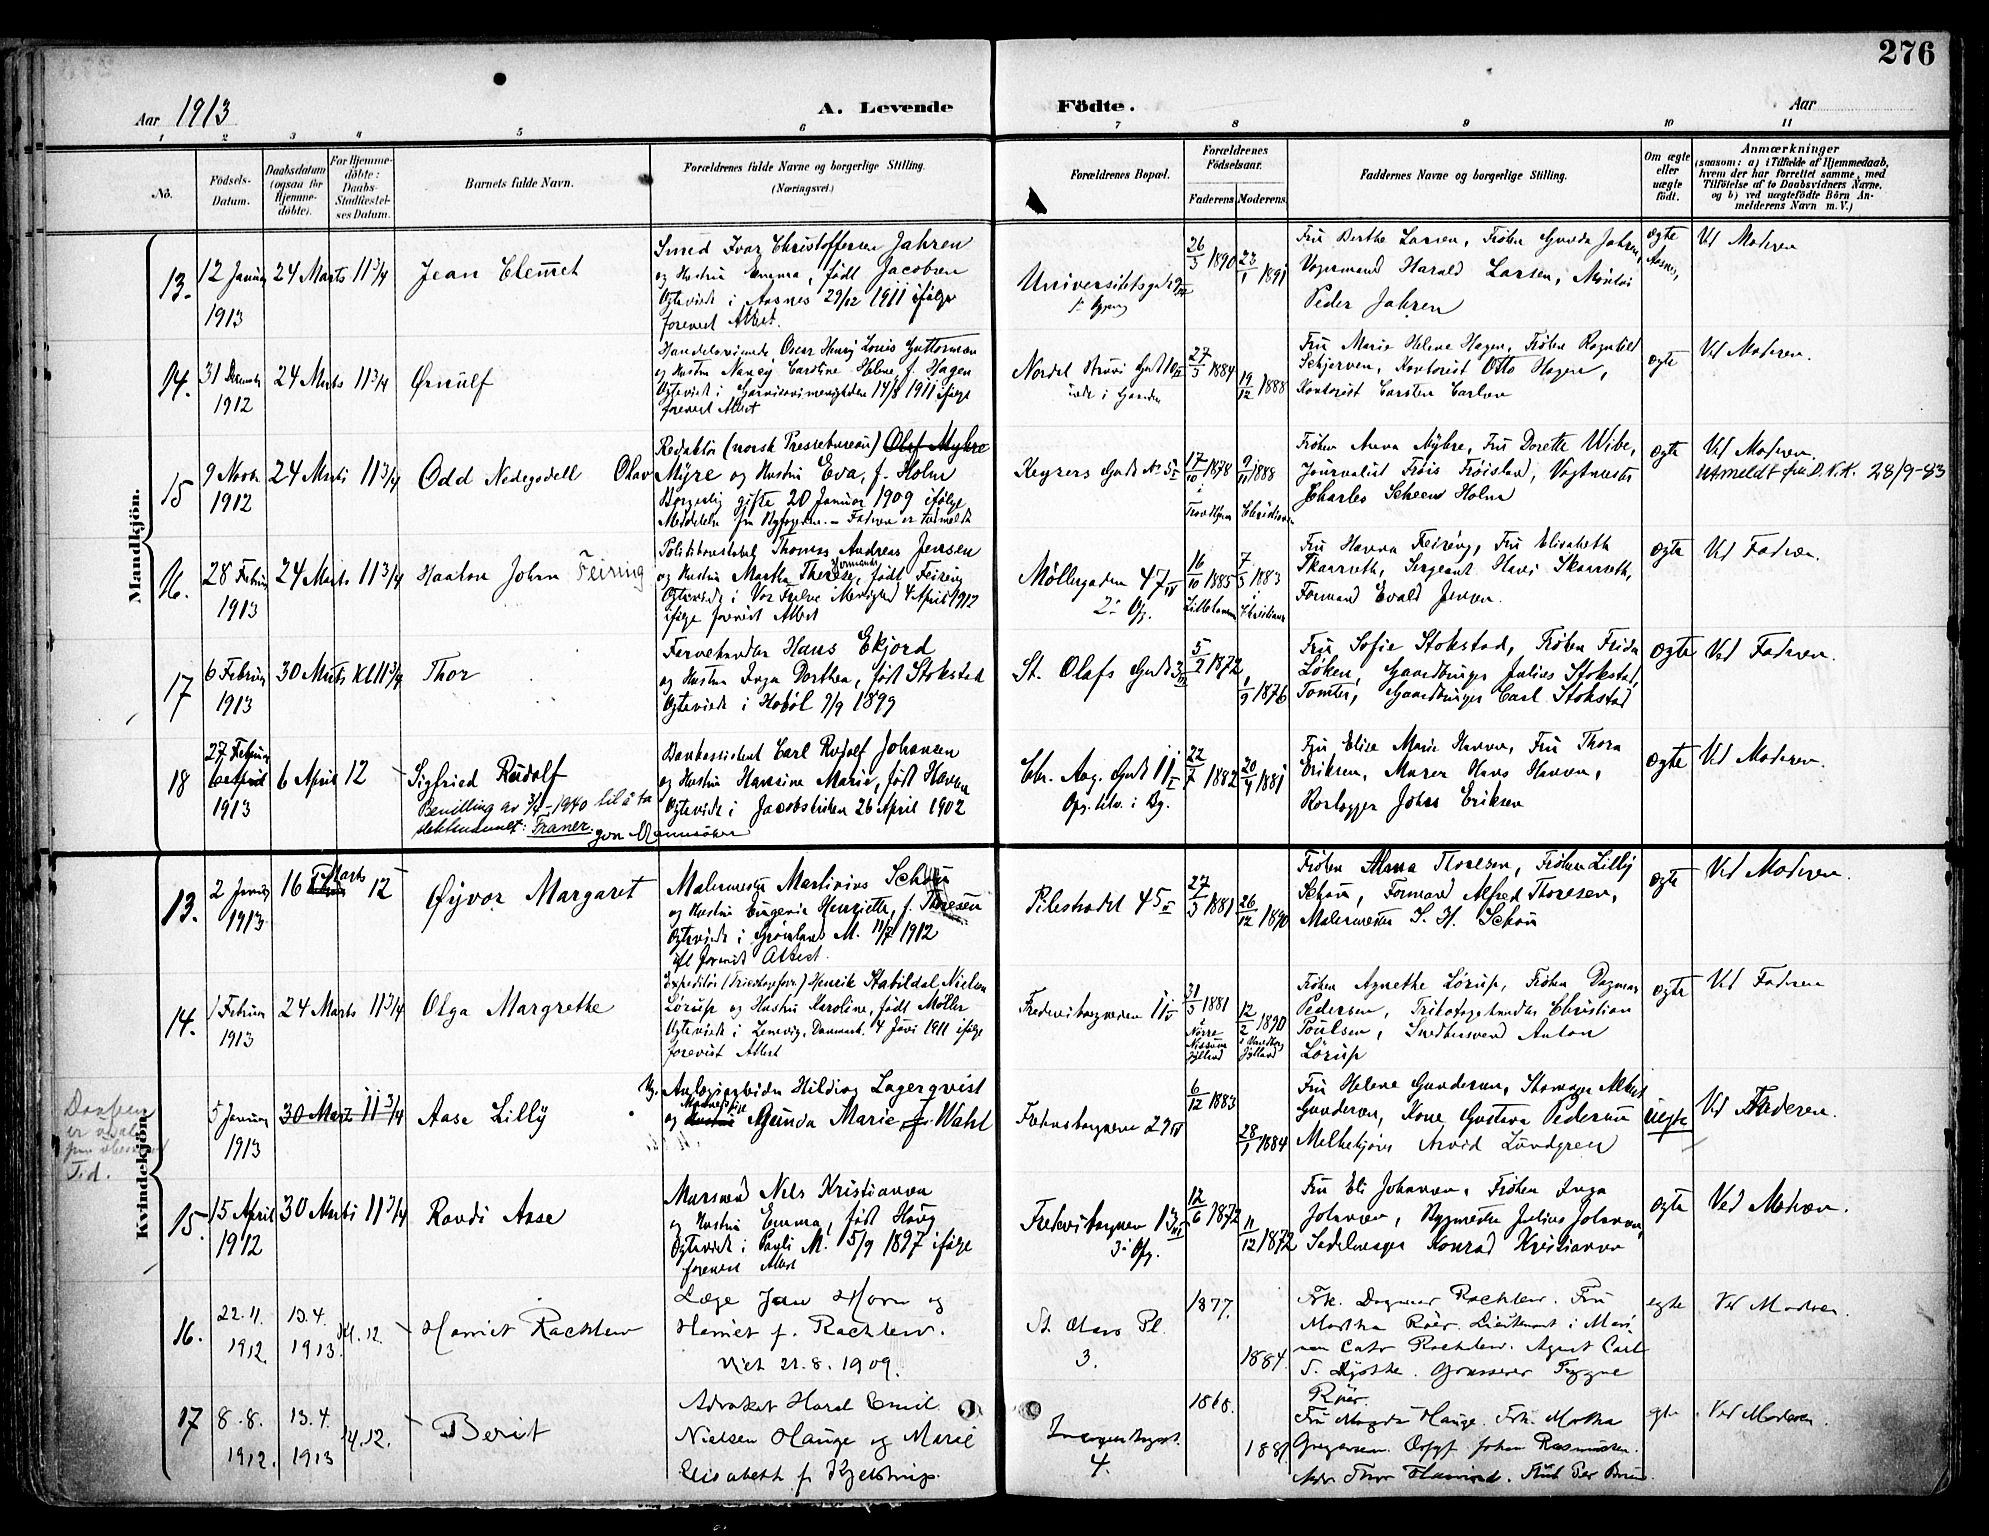 276
Aar 1913
A. Levende
Födte.
Aar
1 2 3 4 5 6 7 8 9 10 11
No.
Födsels-Datum.
Daabsdatum (ogsaa for Hjemme-döbte).
For Hjemme-döbte: Daabs-Stadfæstel-ses Datum.
Barnets fulde Navn.
Forældrenes fulde Navne og borgerlige Stilling.
(Næringsvei.)
Forældrenes Bopæl.
Forældrenes Födselsaar.
Faderens Moderens
Faddernes Navne og borgerlige Stilling.
Om ægte eller uægte födt.
Anmærkninger
(saasom: a) i Tilfælde af Hjemmedaab,
hvem der har forrettet samme, med
Tilföielse af to Daabsvidners Navne,
og b) ved uægtefödte Börn An-
melderens Navn m. V.)
Mandkjön.
13. 12 Januar 1913
24 Marts 11 3/4
Jean Clemet
Smed Ivar Christoffersen Jahren
og Hustru Emma, født Jacobsen
Ægteviede i Aasnes 29/12 1911 ifølge
forevist Attest.
26/3 1890
23/1 1891
Fru Berthe Larsen, Frøken Gunda Jahren,
Vognmand Harald Larsen,
Peder Jahren
ægte
Ved Moderen
14. 31 Decembr 1912
24 Marts 11 3/4
Ørnulf
Oscar Henry Louis Guttorman
og Hustru Nancy Caroline Helene, f. Hagen
Ægteviede i Garnisonsmenigheden 14/8 1911 ifølge
forevist Attest
27/5 1884
19/12 1888
Fru Marie Helene Hagen, Frøken Ragnhild
Schjerven, Kontorist Otto Hagen,
Kontorist Carsten Carlsen
ægte
Ved Moderen.
15 9 Novb. 1912
24 Marts 11 3/4
Odd Nedegodell Olav
Redaktør (norsk Pressebureau) Olaf Myhre
Myre og Hustru Eva, f. Holm
Borgerlig gifte 20 Januar 1909 ifølge
Meddelelse fra Byfogden. – Faderen er udmeldt
Keysers Gade No 5
17/10 1878
9/11 1888
Frøken Anna Myhre, Fru Dorette Wibe,
Journalist Frois Frøisland,
Charles Scheen Holm
ægte
Ved Moderen.
Utmeldt fra D.N.K. 28/9-83
16. 28 Februar 1913
24 Marts 11 3/4
Haakon Johan Feiring
Politikonstabel Thomas Andreas Jensen
og Hustru Martha Therese, født Feiring
Ægteviede i Vor Frelse Menighed 4 April 1912
ifølge forevist Attest
Møllergaden 47 IV
2 Og.
16/10 1885
7/3 1883
Fru Hanna Feiring, Fru Elisabeth
Skarreth, Sergeant Hans Skarreth,
Formand Evald Jensen.
ægte
Ved Faderen.
17 6 Februar 1913
30 Marts Kl 11 3/4
Thor
Farvehandler Hans Ekjord
og Hustru Inga Dorthea, født Stokstad
Ægteviede i Hobøl 9/9 1899
St. Olafs Gade 3 III
5/7 1872
1/9 1876
Fru Sofie Stokstad, Frøken Frida
Løken, Gaardbruger Julius Stokstad,
Tomter, Gaardbruger Carl Stokstad
ægte
Ved Faderen.
18 27 Februar 1913
6 April 12
Sigfried Rudolf
Bevilling av 3/4-1940 til å ta
slektsnavnet: Franer.
Bankassistent Carl Rudolf Johansen
og Hustru Hansine Marie, født Haven
Ægteviede i Jacobskirken 26 April 1902
Chr. Aug. Gade 11 I
22/7 1882
20/4 1881
Fru Elise Marie Haven, Fru Thora
Eriksen, Murer Hans Haven,
Rørlægger Johs Eriksen
ægte
Ved Moderen.
Kvindekjön.
13. 2 Januar 1913
16 Marts 12
Øyvor Margaret
Malermester Martinius Schou
og Hustru Eugenie Henriette, f. Thoresen
Ægteviede i Grønlands M. 11/7 1912
ifl forevist Attest.
Pilestrædet 45 II
27/3 1881
26/12 1890
Frøken Alma Thoresen, Frøken Lilly
Schou, Formand Alfred Thoresen,
Malermester S. H. Schou
ægte
Ved Moderen.
14. 1 Februar 1913
24 Marts 11 3/4
Olga Margrethe
Henrik Stabildal Nielsen
Lørup og Hustru Karoline, født Møller
Ægteviede i Lemvig, Danmark 4 Juni 1911 ifølge
forevist Attest
31/3 1881
Nørre Nissum Jylland
12/2 1890
Frøken Agnethe Lørup, Frøken Dagmar
Pedersen, Trikotagehandler Christian
Poulsen, Snedkersvend Anton
Lørup
ægte
Ved Faderen
Daaben er
Tid.
5 Januar 1913
30 Marts 11 3/4
Aase Lilly
Ug. Anlægsarbeider Hilding Lagerqvist
og Hustru Gunda Marie f. Wahl
29 IV
6/12 1883
28/1 1884
Fru Helene Gundersen, Albert
Gundersen, Kone Gustava Pedersen
Melkekjører Arvid Lundgren
uegte
Ved Faderen.
15. 15 April 1912
30 Marts 11 3/4
Randi Aase
Nils Kristiansen
og Hustru Emma, født Haug
Ægteviede i Pauli M. 5/9 1897 ifølge
forevist Attest
13 III
3 Opg.
12/6 1872
11/12 1872
Fru Eli Johansen, Frøken Inga
Johansen, Bygmester Julius Johansen,
Sadelmager Konrad Kristiansen
ægte
Ved Moderen.
16. 22.11. 1912.
13.4. 1913.
Kl. 12.
Harriet Rachlew
Læge Jan Horn og
Harriet f. Rachlew.
viet 21.8.1909.
St. Olavs Pl.
3.
1877.
1884.
Frk. Dagmar Rachlew. Fru
Martha Röer. Löitenant i Mari-
nen Cato Rachlew. Agent Carl
Grosserer Trygve
Röer.
egte
Ved Moderen.
17 8.8. 1912.
13.4. 1913
Kl. 12.
Berit
Advokat Harald Emil
Nielsen Hauge og Marie
Elisabeth f. Kjelstrup.
4.
1868.
1881
Fru Magda Hauge. Frk. Martha
Gregersen. Johan Rasmussen.
egte
Ved Moderen.